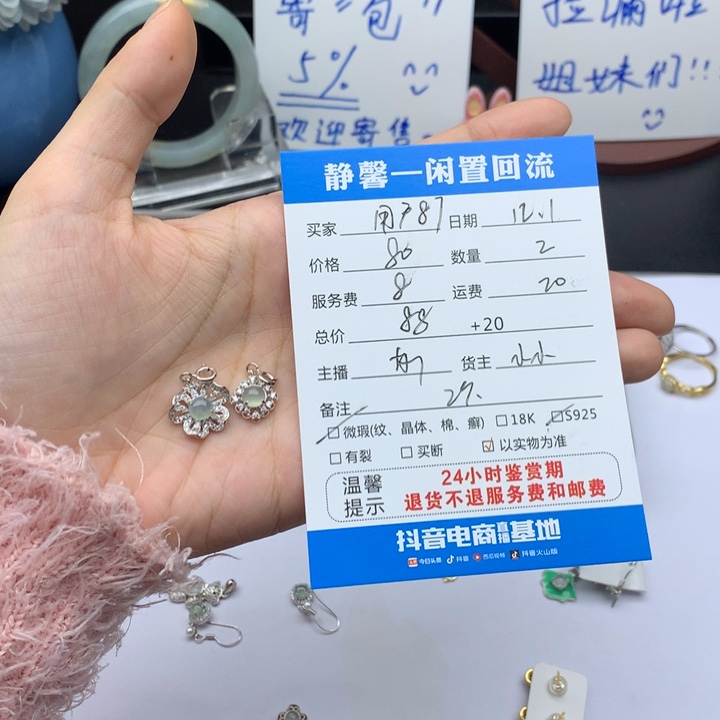 寄"包"
5%
欢迎寄售~
姐妹们!!
静馨—闲置回流
买家 用户87 日期 12.1
价格 80 数量 2
服务费 8 运费 20
总价 88 +20
主播 货主 小小
备注 27.
微瑕(纹、晶体、棉、癣) 18K S925
有裂 买断 以实物为准
温馨提示 24小时鉴赏期
退货不退服务费和邮费
抖音电商直播基地
今日头条 抖音 西瓜视频 抖音火山版